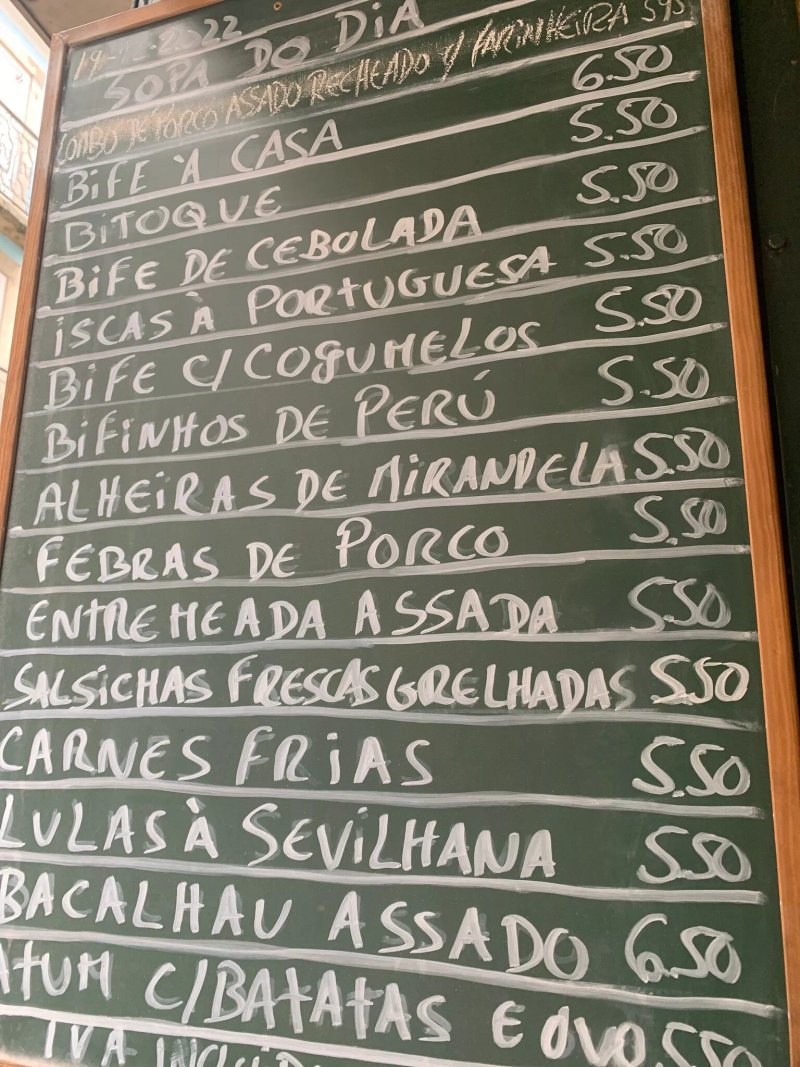 SOPA DO DIA
LOMBO DE PORCO ASSADO RECHEADO Y FARINHEIRA 595
BIFE À CASA 6.50
BITOQUE 5.50
BIFE DE CEBOLADA 5.50
ISCAS À PORTUGUESA 5.50
BIFE C/ COGUMELOS 5.50
BIFINHOS DE PERÚ 5.50
ALHEIRAS DE MIRANDELA 5.50
FEBRAS DE PORCO 5.50
ENTREMEADA ASSADA 5.50
SALSICHAS FRESCAS GRELHADAS 5.50
CARNES FRIAS 5.50
LULAS À SEVILHANA 5.50
BACALHAU ASSADO 6.50
ATUM C/BATATAS E OVO 5.50
IVA